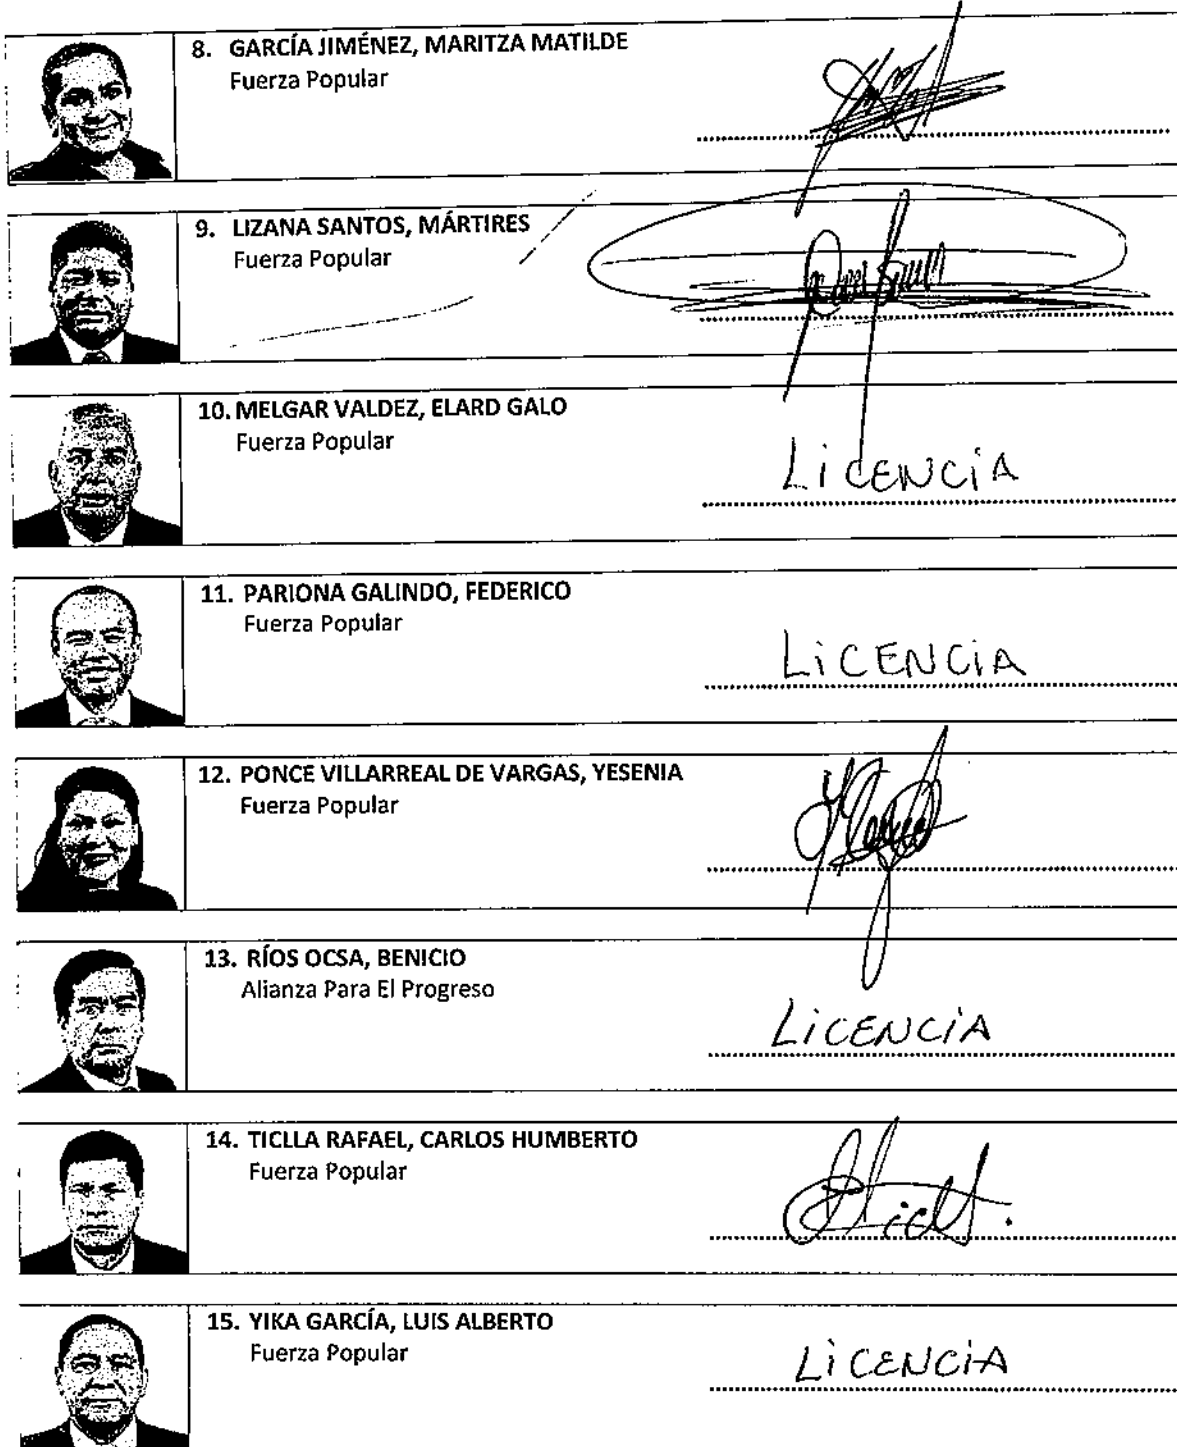 8. GARCÍA JIMÉNEZ, MARITZA MATILDE
Fuerza Popular
9. LIZANA SANTOS, MÁRTIRES
Fuerza Popular
10. MELGAR VALDEZ, ELARD GALO
Fuerza Popular
LiCENCiA
11. PARIONA GALINDO, FEDERICO
Fuerza Popular
LiCENCiA
12. PONCE VILLARREAL DE VARGAS, YESENIA
Fuerza Popular
13. RÍOS OCSA, BENICIO
Alianza Para El Progreso
LiCENCiA
14. TICLLA RAFAEL, CARLOS HUMBERTO
Fuerza Popular
15. YIKA GARCÍA, LUIS ALBERTO
Fuerza Popular
LiCENCiA